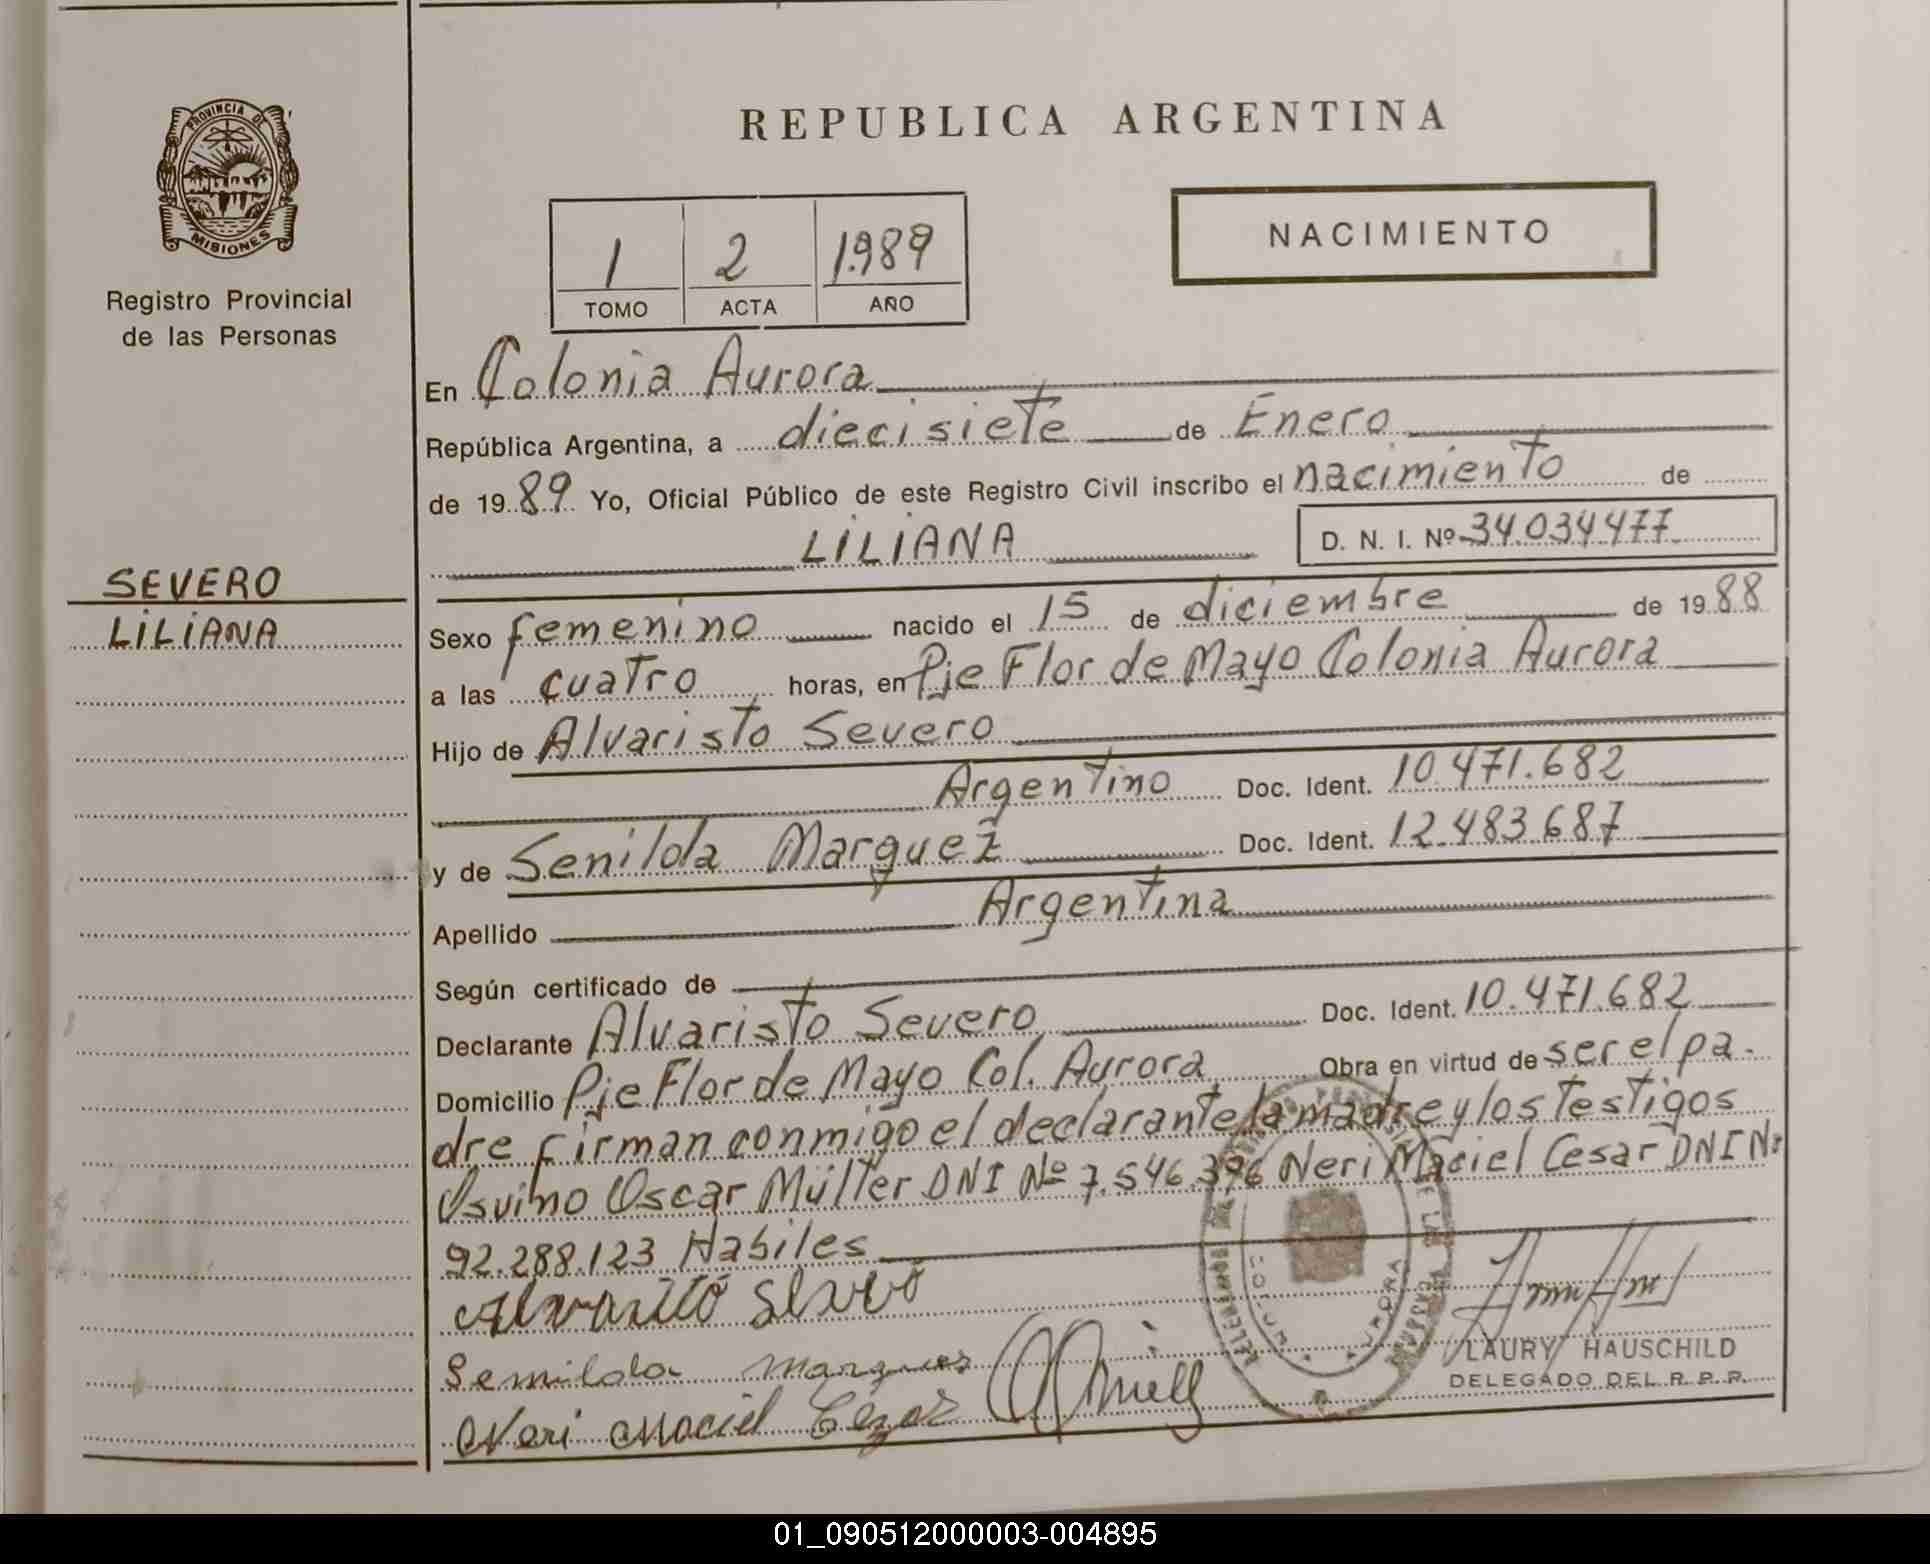 PROVINCIA DE
MISIONES
Registro Provincial
de las Personas
SEVERO
LILIANA
REPUBLICA ARGENTINA
1 2 1.989
TOMO ACTA AÑO
NACIMIENTO
En Colonia Aurora
República Argentina, a diecisiete de Enero
de 1989 Yo, Oficial Público de este Registro Civil inscribo el nacimiento de
LILIANA D. N. I. Nº 34.034.477
Sexo femenino nacido el 15 de diciembre de 1988
a las cuatro horas, en Pje Flor de Mayo Colonia Aurora
Hijo de Alvaristo Severo
Argentino Doc. Ident. 10.471.682
y de Senilda Marquez Doc. Ident. 12.483.687
Argentina
Apellido
Según certificado de
Declarante Alvaristo Severo Doc. Ident. 10.471.682
Domicilio Pje Flor de Mayo Col. Aurora Obra en virtud de ser el pa-
dre firman conmigo el declarante la madre y los testigos
Osvino Oscar Müller DNI Nº 7.546.396 Neri Maciel Cesar DNI Nº
92.288.123 Habiles
Semilda Marques
Neri Maciel Cezar
COLONIA AURORA
LAURY HAUSCHILD
DELEGADO DEL R. P. P.
01_090512000003-004895